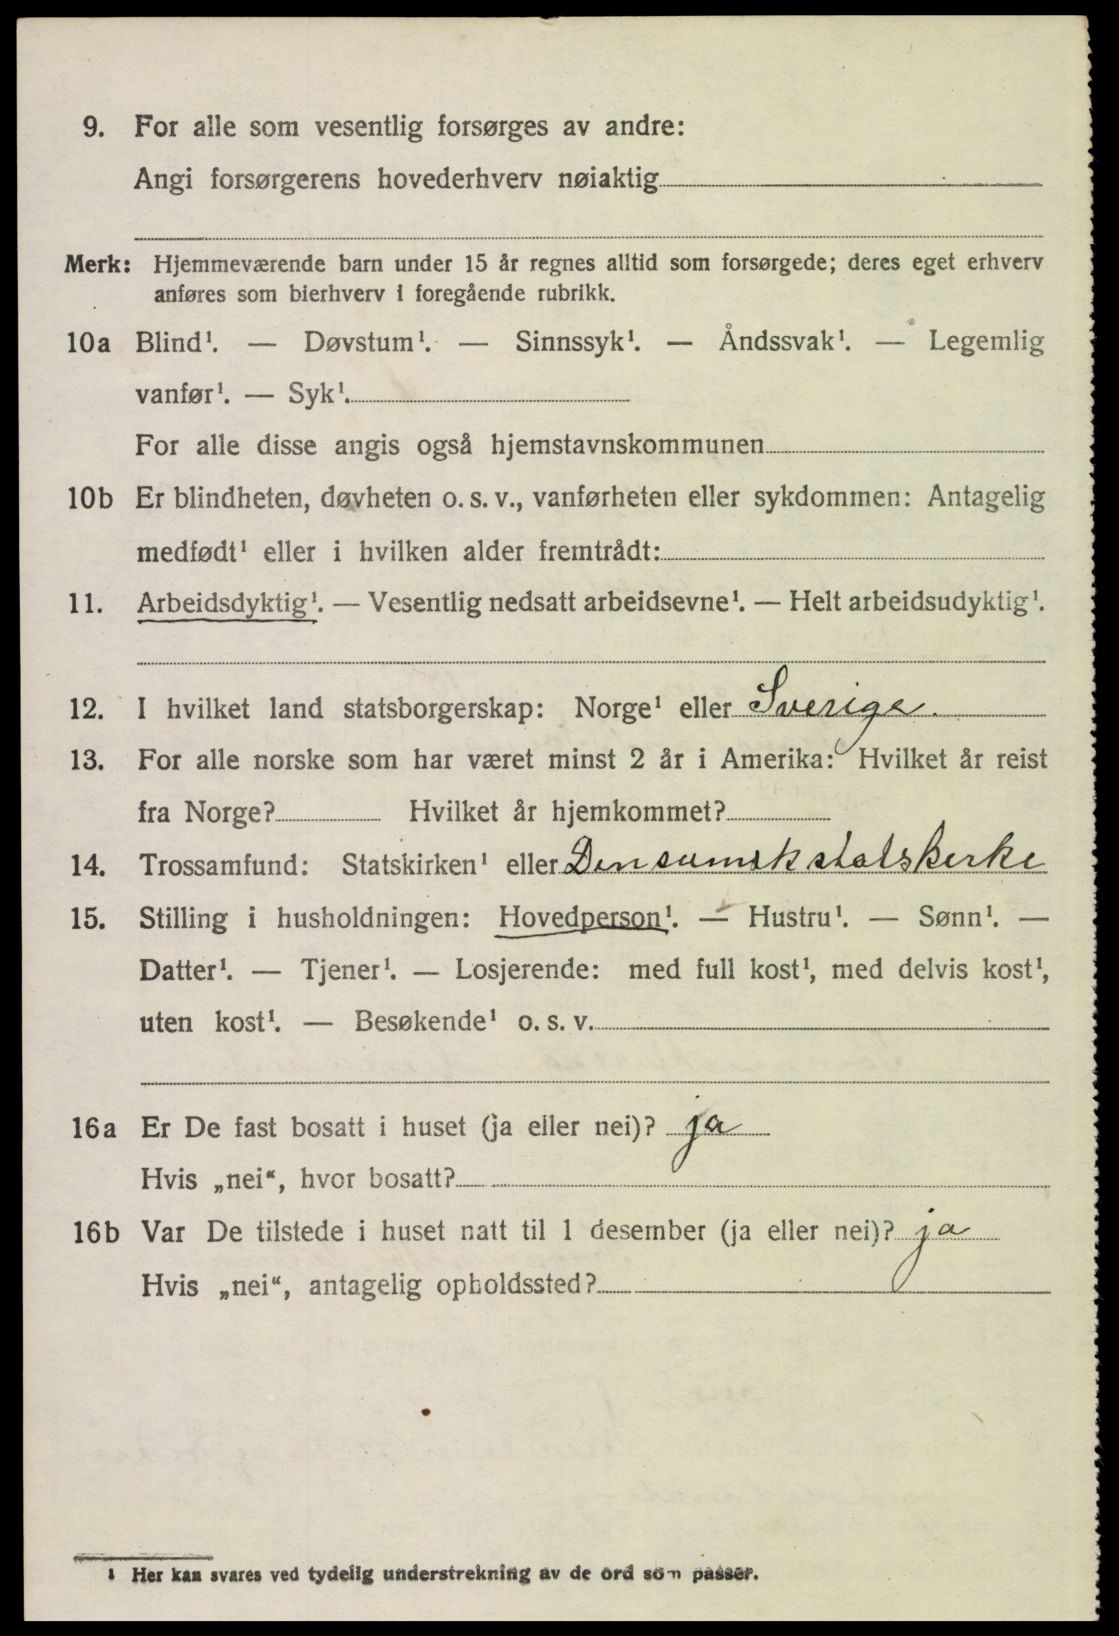 9. For alle som vesentlig forsørges av andre:
Angi forsørgerens hovederhverv nøiaktig
Merk: Hjemmeværende barn under 15 år regnes alltid som forsørgede; deres eget erhverv
anføres som bierhverv i foregående rubrikk.
10a Blind¹. — Døvstum¹. — Sinnssyk¹. — Åndssvak¹. — Legemlig
vanfør¹. — Syk¹.
For alle disse angis også hjemstavnskommunen
10b Er blindheten, døvheten o. s. v., vanførheten eller sykdommen: Antagelig
medfødt¹ eller i hvilken alder fremtrådt:
11. Arbeidsdyktig¹. — Vesentlig nedsatt arbeidsevne¹. — Helt arbeidsudyktig¹.
12. I hvilket land statsborgerskap: Norge¹ eller Sverige.
13. For alle norske som har været minst 2 år i Amerika: Hvilket år reist
fra Norge? Hvilket år hjemkommet?
14. Trossamfund: Statskirken¹ eller Den statskerke
15. Stilling i husholdningen: Hovedperson¹. — Hustru¹. — Sønn¹. —
Datter¹. — Tjener¹. — Losjerende: med full kost¹, med delvis kost¹,
uten kost¹. — Besøkende¹ o. s. v.
16a Er De fast bosatt i huset (ja eller nei)? ja
Hvis „nei“, hvor bosatt?
16b Var De tilstede i huset natt til 1 desember (ja eller nei)? ja
Hvis „nei“, antagelig opholdssted?
¹ Her kan svares ved tydelig understrekning av de ord som passer.